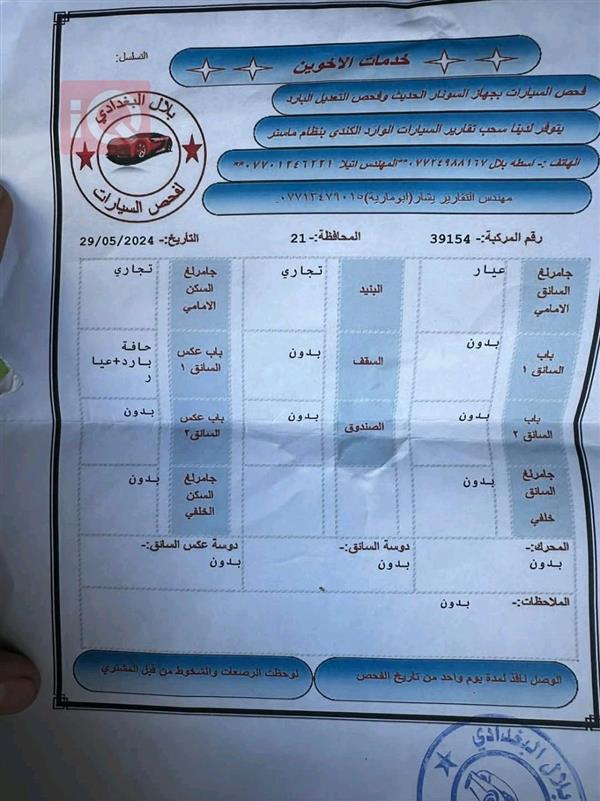 التسلسل:
خدمات الاخوين
بلال البغدادي
لفحص السيارات
iQ
فحص السيارات بجهاز السونار الحديث وفحص التعديل البارد
يتوفر لدينا سحب تقارير السيارات الوارد الكندي بنظام ماستر
الهاتف :- اسطه بلال ٠٧٧٢٤٩٨٨١٦٧**المهندس اتيلا ٠٧٧٠١٢٤٦٢٢١**
مهندس التقارير بشار(ابومارية)٠٧٧١٣٤٧٩٠١٥.
رقم المركبة:- 39154 المحافظة:- 21 التاريخ:- 29/05/2024
جامرلغ السائق الامامي عيار البنيد تجاري جامرلغ السكن الامامي تجاري
باب السائق ١ بدون السقف بدون باب عكس السائق ١ حافة بارد+عيار
باب السائق ٢ بدون الصندوق بدون باب عكس السائق٢ بدون
جامرلغ السائق خلفي بدون جامرلغ السكن الخلفي بدون
المحرك:- دوسة السائق:- دوسة عكس السائق:-
بدون بدون بدون
الملاحظات:- بدون
الوصل نافذ لمدة يوم واحد من تاريخ الفحص
لوحظت الرصعات والشخوط من قبل المشتري
بلال البغدادي